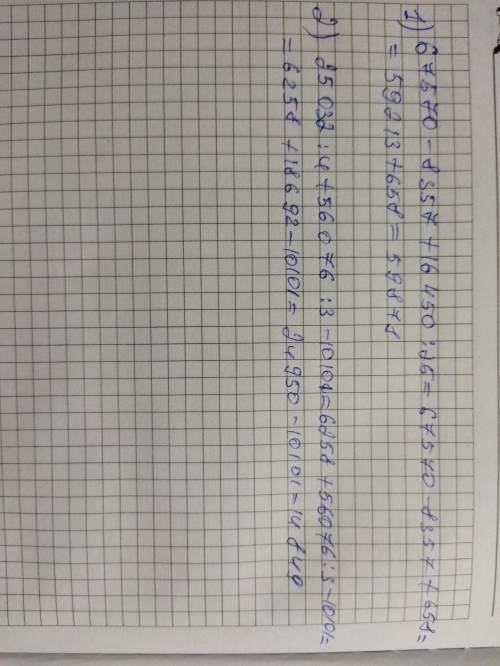 1) 67570 - 8357 + 16450 : 25 = 67570 - 8357 + 658 =
= 59213 + 658 = 59871
2) 25032 : 4 + 56076 : 3 - 10101 = 6258 + 56076 : 3 - 10101 =
= 6258 + 18692 - 10101 = 24950 - 10101 = 14849